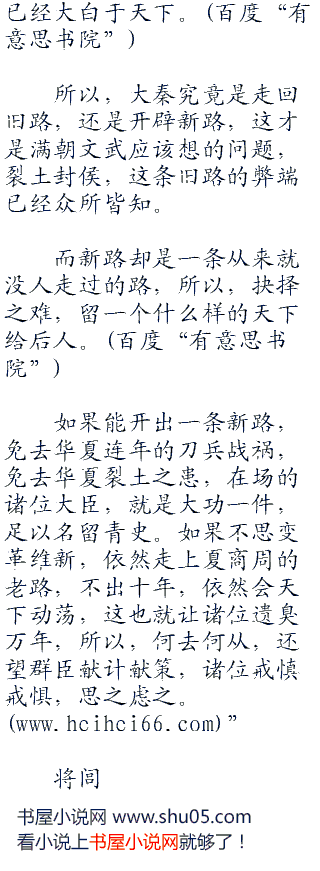 已经大白于天下。(百度“有
意思书院”)
所以，大秦究竟是走回
旧路，还是开辟新路，这才
是满朝文武应该想的问题，
裂土封侯，这条旧路的弊端
已经众所皆知。
而新路却是一条从来就
没人走过的路，所以，抉择
之难，留一个什么样的天下
给后人。(百度“有意思书
院”)
如果能开出一条新路，
免去华夏连年的刀兵战祸，
免去华夏裂土之患，在场的
诸位大臣，就是大功一件，
足以名留青史。如果不思变
革维新，依然走上夏商周的
老路，不出十年，依然会天
下动荡，这也就让诸位遗臭
万年，所以，何去何从，还
望群臣献计献策，诸位戒慎
戒惧，思之虑之。
(www.hcihci66.com)”
将闾
书屋小说网 www.shu05.com
看小说上书屋小说网就够了！